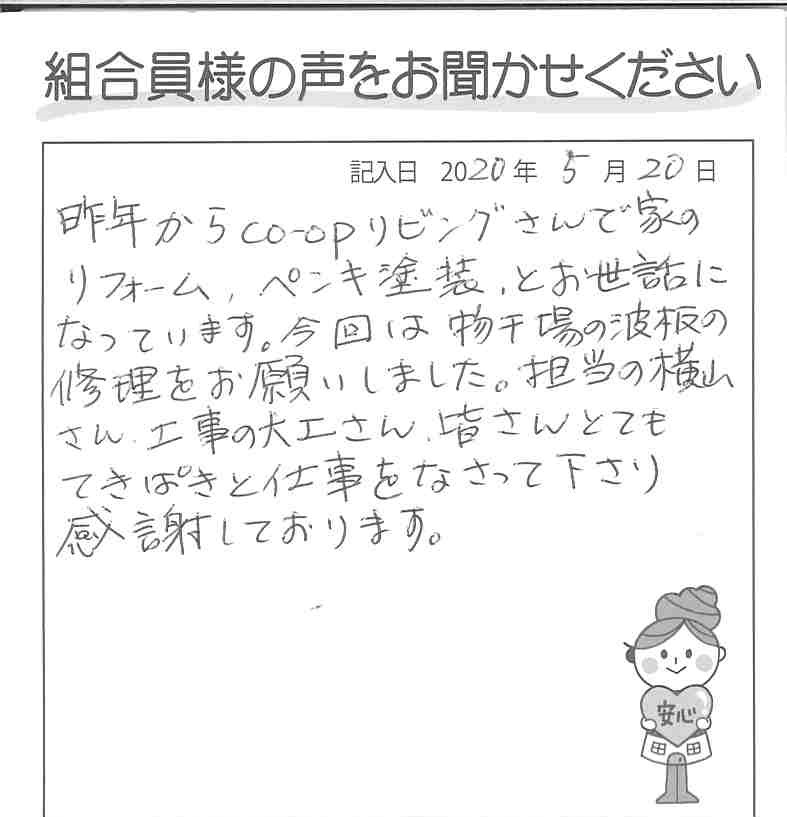 組合員様の声をお聞かせください
記入日 2020年 5月20日
昨年からco-opリビングさんで家の
リフォーム、ペンキ塗装、とお世話に
なっています。今回は物干場の波板の
修理をお願いしました。担当の横山
さん、工事の大工さん、皆さんとても
てきぱきと仕事をなさって下さり
感謝しております。
安心